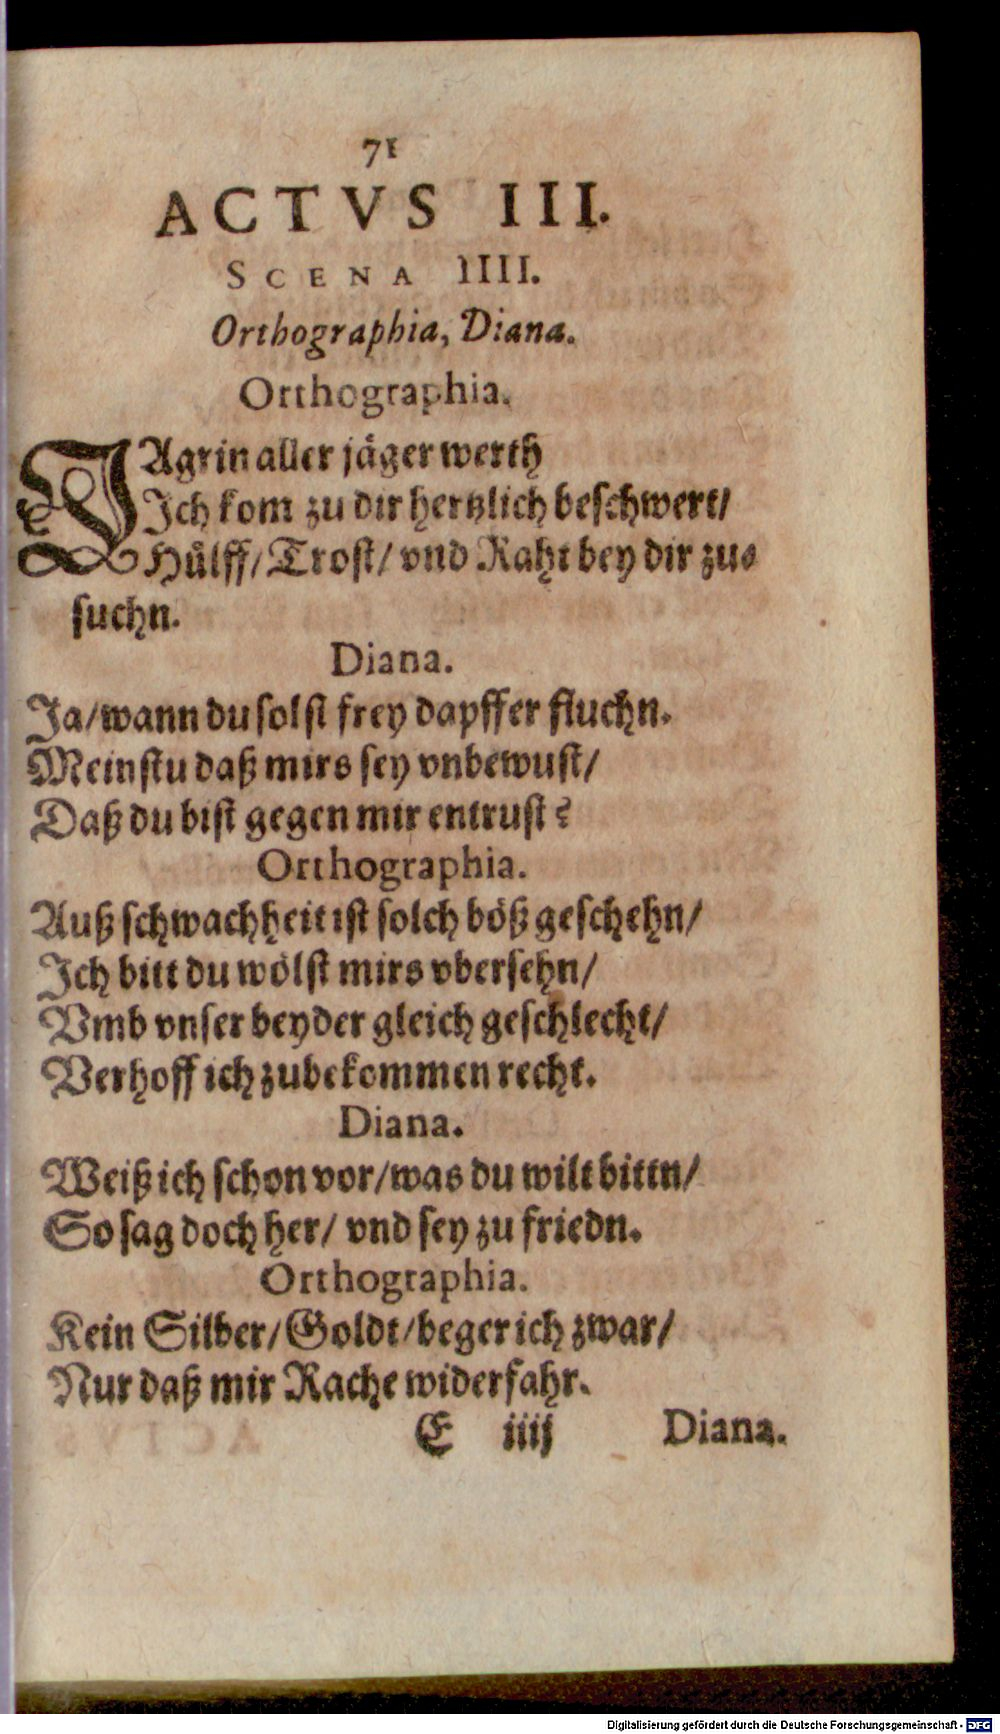 71
ACTVS III.
SCENA IIII.
Orthographia, Diana.
Orthographia.
JAgrin aller jäger werth
Ich kom zu dir hertzlich beschwert/
Hülff/ Trost/ vnd Raht bey dir zu-
suchn.
Diana.
Ja/ wann du solst frey dapffer fluchn.
Meinstu daß mirs sey vnbewust/
Daß du bist gegen mir entrust?
Orthographia.
Auß schwachheit ist solch böß geschehn/
Ich bitt du wölst mirs vbersehn/
Vmb vnser beyder gleich geschlecht/
Verhoff ich zubekommen recht.
Diana.
Weiß ich schon vor/ was du wilt bittn/
So sag doch her/ vnd sey zu friedn.
Orthographia.
Kein Silber/ Goldt/ beger ich zwar/
Nur daß mir Rache widerfahr.
E iiij Diana.
Digitalisierung gefördert durch die Deutsche Forschungsgemeinschaft - DFG